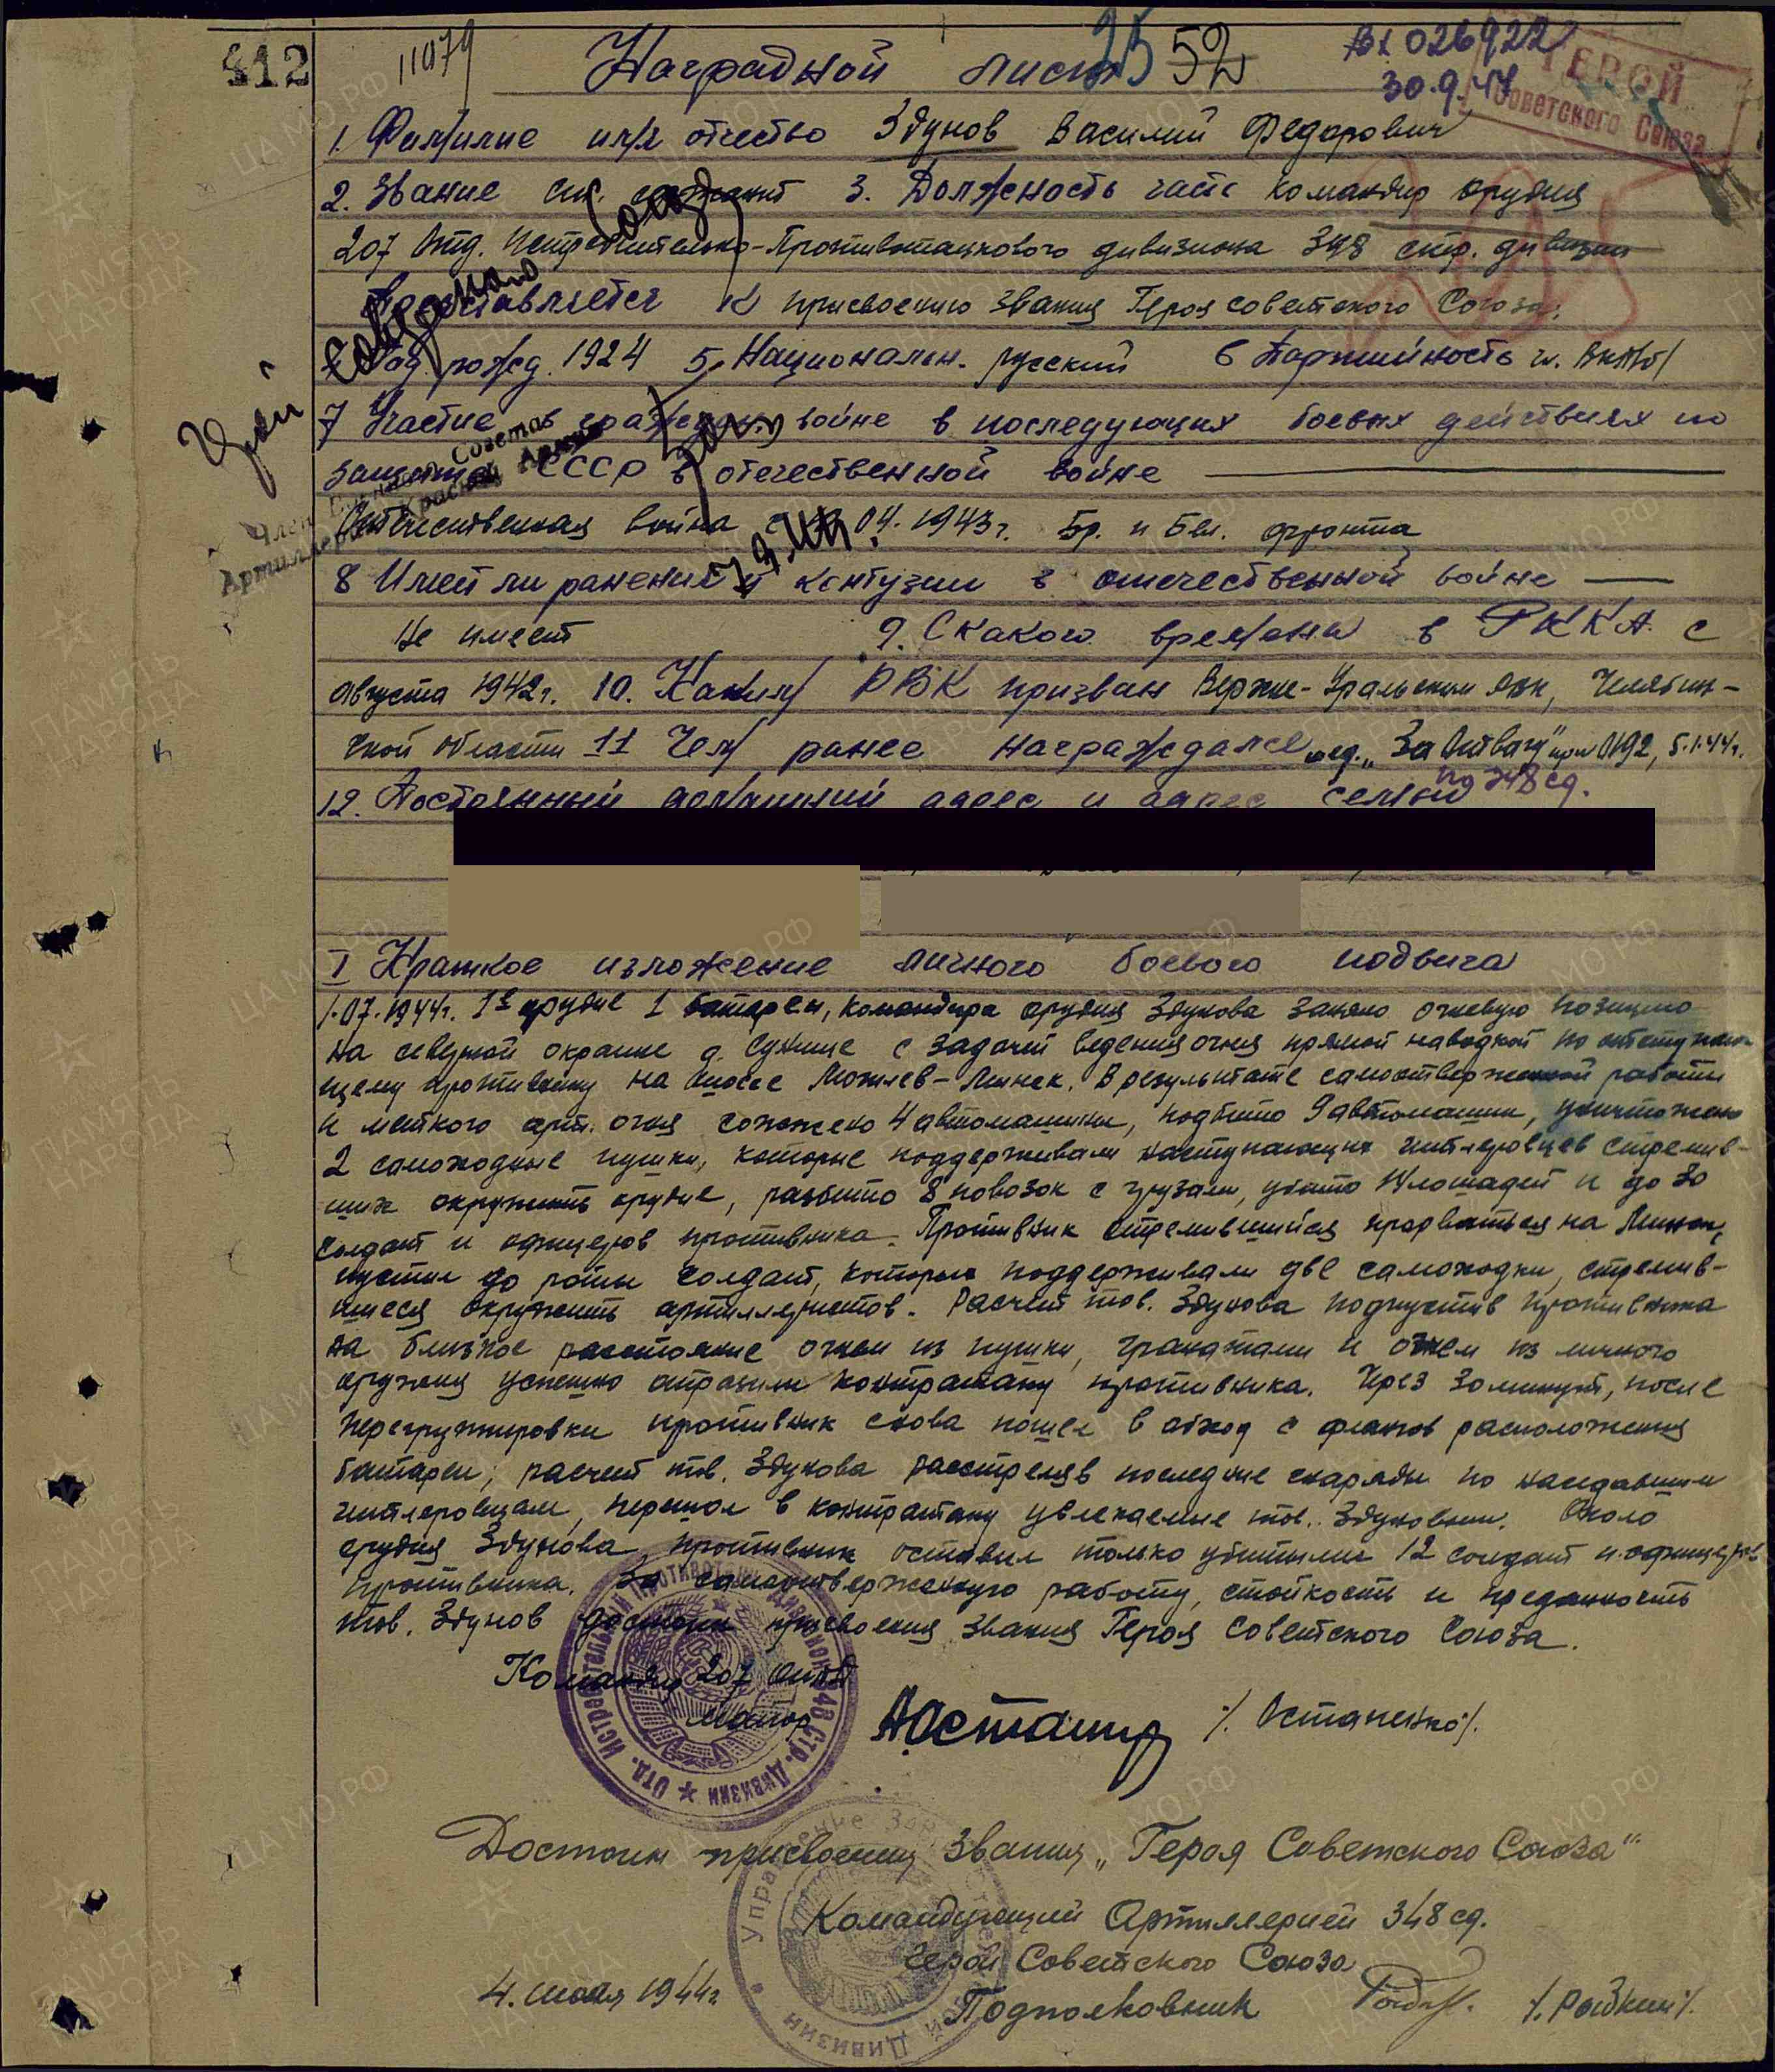 412 11079 Наградной лист 25 52 026922
30.9.44
ГЕРОЙ
Советского Союза
1. Фамилие имя отчество Здунов Василий Федорович
2. Звание сержант 3. Должность часть командир орудия
207 Отд. Истребительно-Противотанкового дивизиона 348 стр. дивизии
Представляется к присвоению звания Героя Советского Союза.
Год рожд. 1924 5. Национальн. русский 6 Партийность чл. ВКП/б/
7 Участие в граждан. войне в последующих боевых действиях по
защите СССР в отечественной войне
Отечественная война с 04. 1943г. Бр. и Бел. фронта
8 Имеет ли ранения и контузии в отечественной войне —
Не имеет 9. С какого времени в РККА. с
августа 1942г. 10. Каким РВК призван Верхне-Уральским РВК, Челябин-
ской области 11 Чем ранее награждался мед. „За Отвагу" 5.1.44г.
по 348 сд.
12. Постоянный домашний адрес и адрес семьи
Член Военного Совета
Артиллерии Красной Армии
I Краткое изложение личного боевого подвига
1.07.1944г. 1е орудие 1 батареи, командира орудия Здунова заняло огневую позицию
на северной окраине д. с задачей ведения огня прямой наводкой по отступаю-
щему противнику на шоссе Могилев-Минск. В результате самоотверженной работы
и меткого арт. огня сожжено 4 автомашины, подбито 9 автомашин, уничтожено
2 самоходные пушки, которые поддерживали наступающих гитлеровцев стремив-
ших окружить орудие, разбито 8 повозок с грузами, убито 14 лошадей и до 30
солдат и офицеров противника. Противник стремившийся прорваться на Минск,
пустил до роты солдат, которых поддерживали две самоходки, стремив-
шиеся окружить артиллеристов. Расчет тов. Здунова подпустив противника
на близкое расстояние огнем из пушки, гранатами и огнем из личного
оружия успешно отразили контратаку противника. Через 30 минут, после
перегруппировки противник снова пошел в обход с флангов расположения
батареи, расчет тов. Здунова расстреляв последние снаряды по наседавшим
гитлеровцам, перешол в контратаку увлекаемые тов. Здуновым. Около
орудия Здунова противник оставил только убитыми 12 солдат и офицеров
противника. За самоотверженную работу, стойкость и преданность
тов. Здунов достоин присвоения звания Героя Советского Союза.
Командир 207 ОИПТД
Майор /Остапенко/.
ОТД. ИСТРЕБИТЕЛЬНЫЙ ПРОТИВОТАНК. ДИВИЗИОН 348 СТР. ДИВИЗИИ
Достоин присвоения звания „Героя Советского Союза"
Командующий Артиллерией 348 сд.
Герой Советского Союза
4. июля 1944г. Подполковник